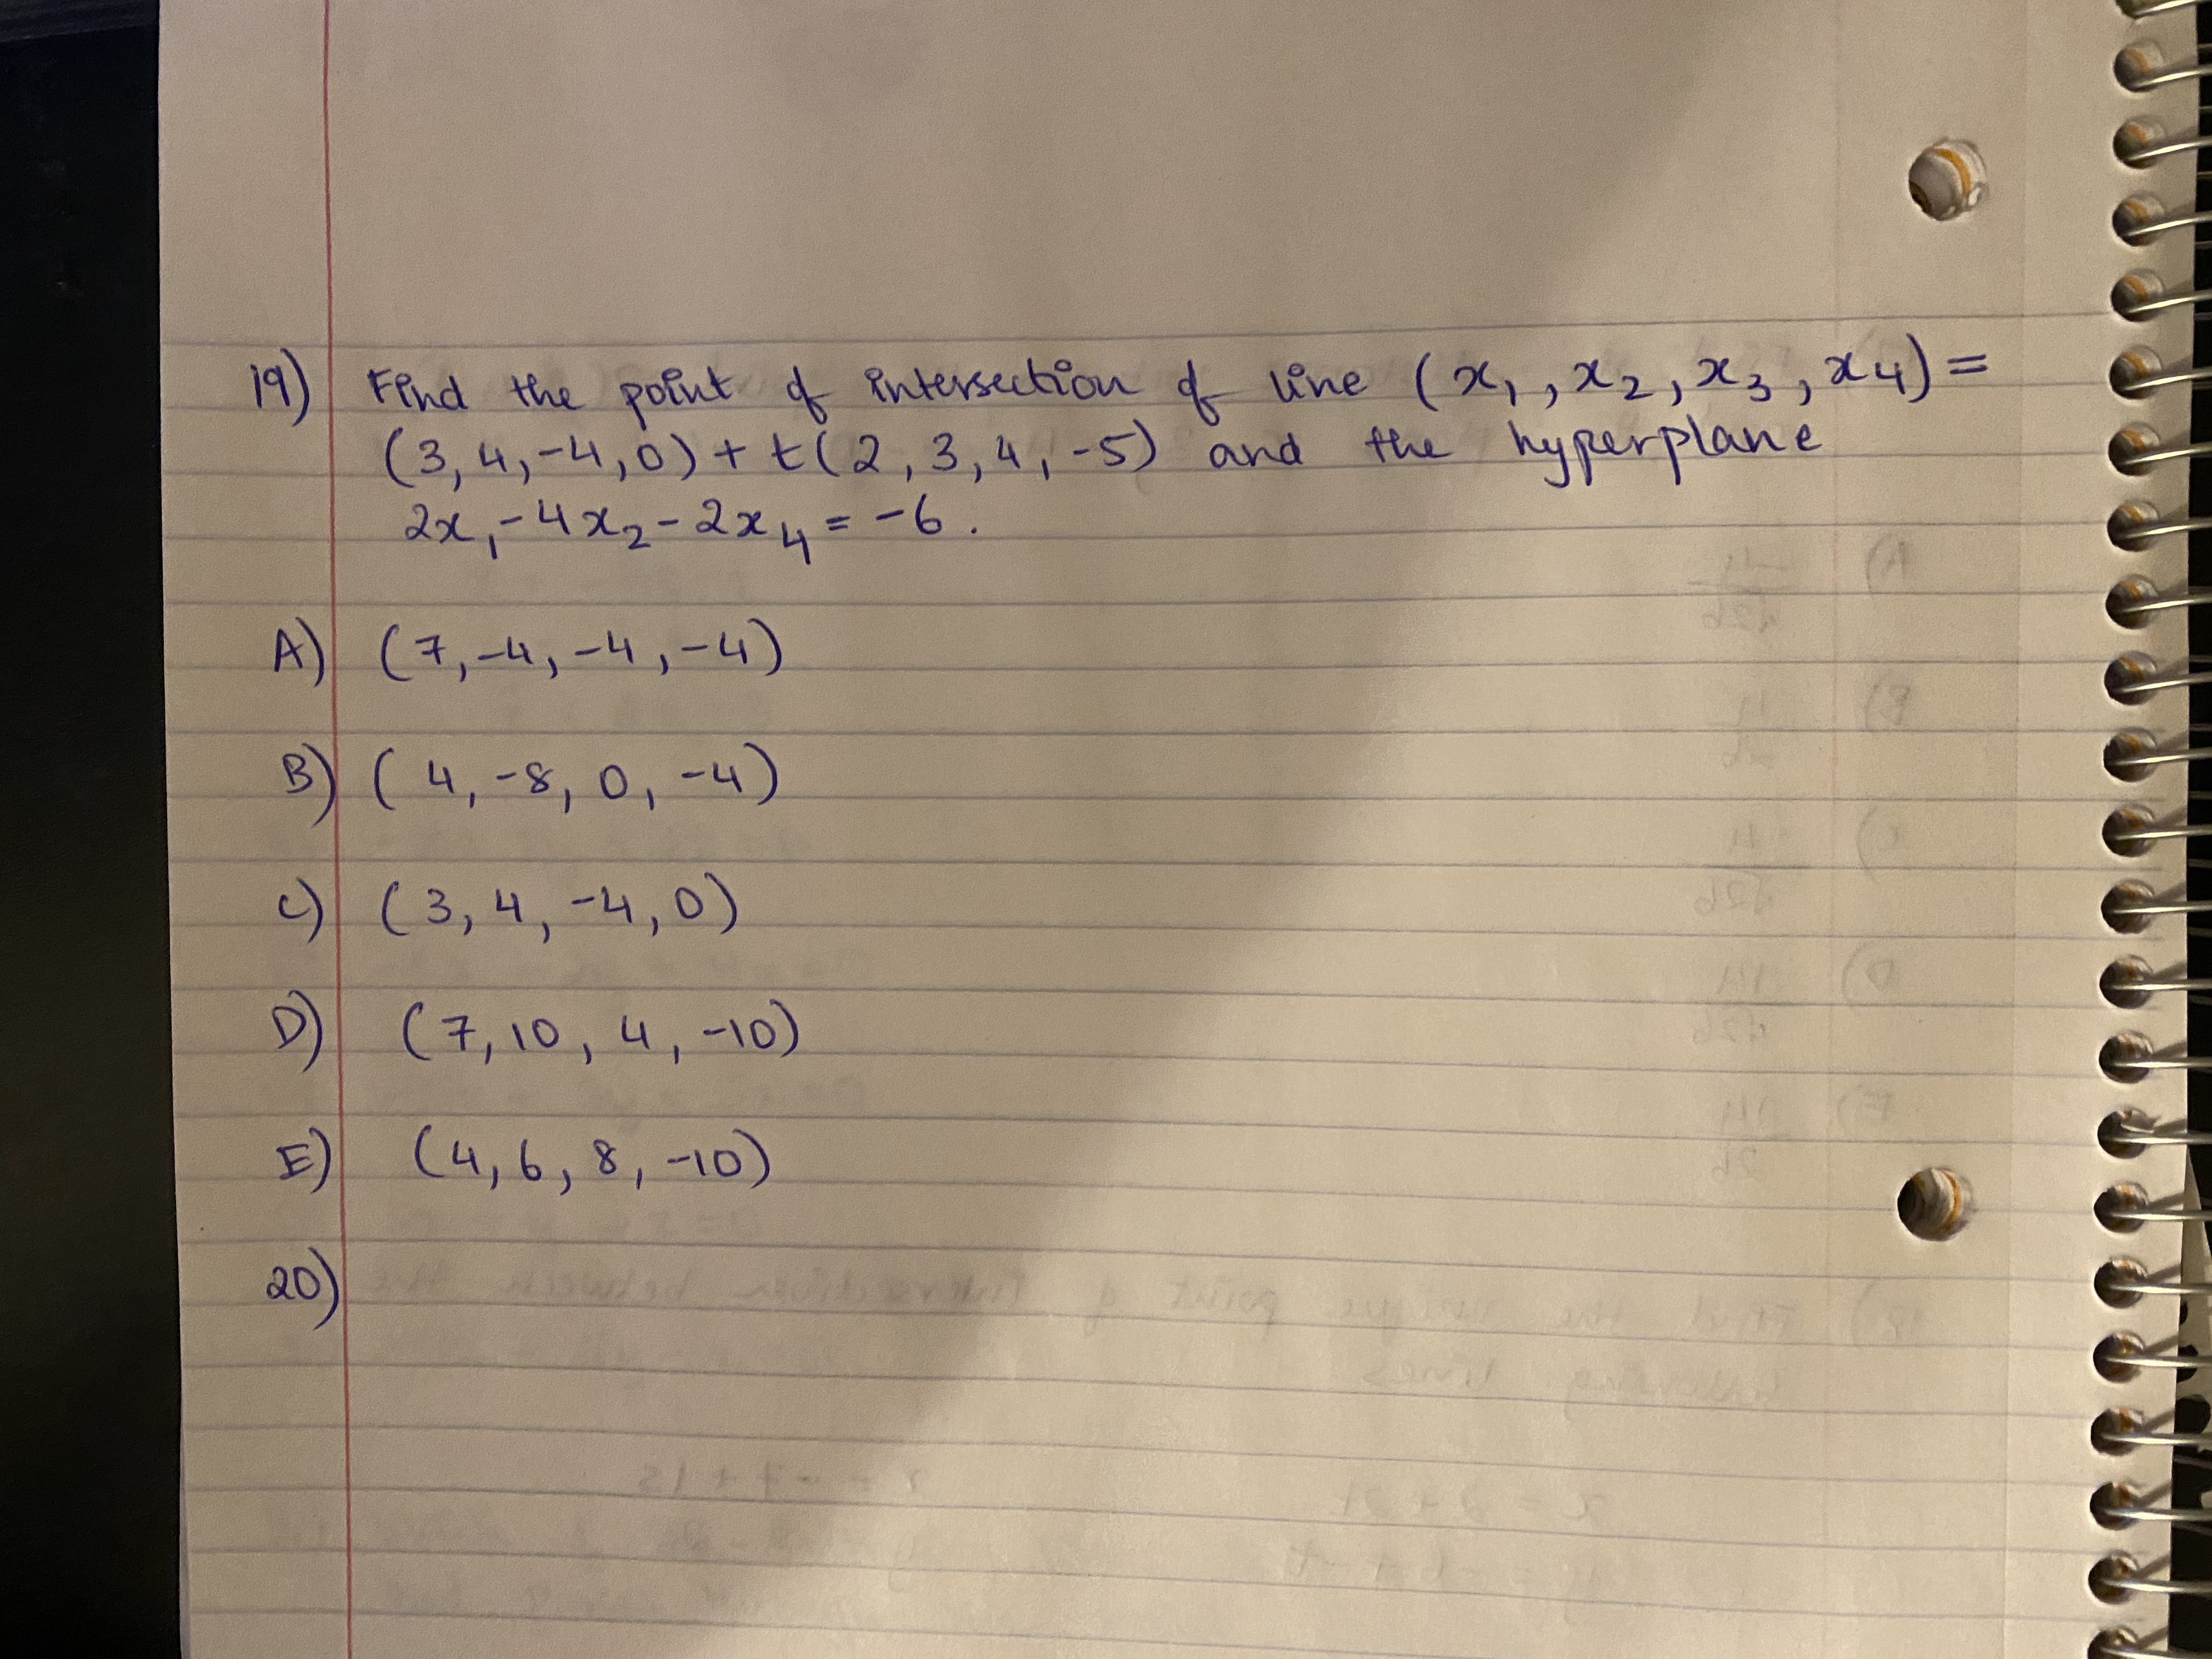 19) Find the point of intersection of line (x₁, x₂, x₃, x₄) =
(3, 4, -4, 0) + t(2, 3, 4, -5) and the hyperplane
2x₁ - 4x₂ - 2x₄ = -6.
A) (7, -4, -4, -4)
B) (4, -8, 0, -4)
C) (3, 4, -4, 0)
D) (7, 10, 4, -10)
E) (4, 6, 8, -10)
20)